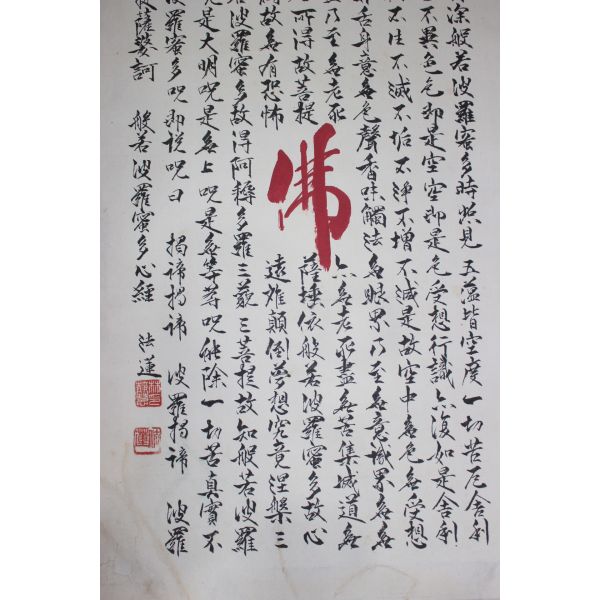 深般若波羅蜜多時照見五蘊皆空度一切苦厄舍利
不異色色即是空空即是色受想行識亦復如是舍利
不生不滅不垢不淨不增不減是故空中無色無受想
舌身意無色聲香味觸法無眼界乃至無意識界無無
乃至無老死亦無老死盡無苦集滅道無
所得故菩提薩埵依般若波羅蜜多故心
故無有恐怖遠離顛倒夢想究竟涅槃三
波羅蜜多故得阿耨多羅三藐三菩提故知般若波羅
咒是大明咒是無上咒是無等等咒能除一切苦真實不
羅蜜多咒即說咒曰 揭諦揭諦 波羅揭諦 波羅
薩婆訶 般若波羅蜜多心經 法蓮
佛